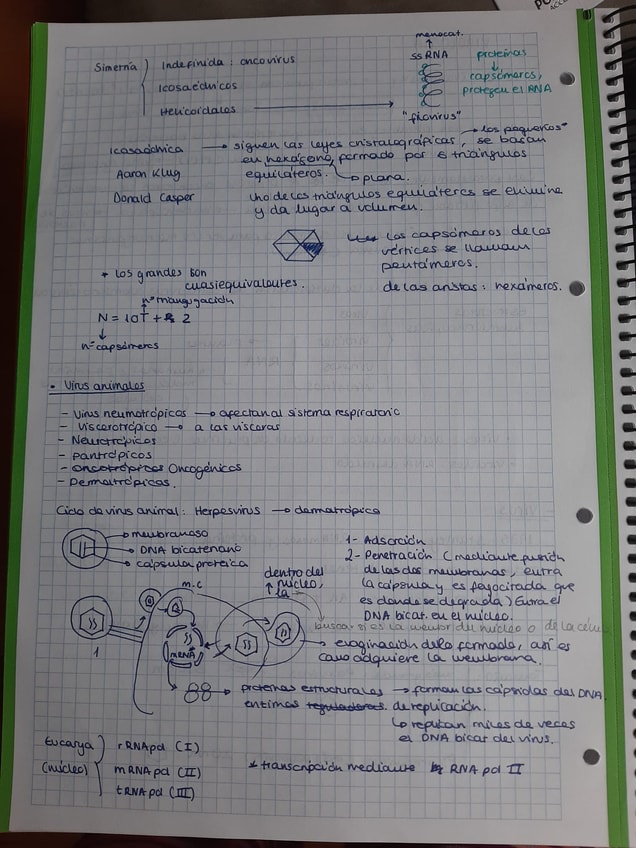 monocat.
Simetría
Indefinida: oncovirus
Icosaédricos
Helicoidales
ssRNA
"filovirus"
proteínas
capsómeros,
protegen el RNA
Icosaédrica → siguen las leyes cristalográficas, se basan
los pequeños*
en hexágono, formado por 6 triángulos
Aaron Klug
equiláteros. → plana.
Donald Casper
Uno de los triángulos equiláteros se elimina
y da lugar a volumen.
Los capsómeros de los
vértices se llaman
pentámeros.
de las aristas: hexámeros.
* los grandes son
cuasiequivalentes.
nº triangulación
N = 10T + 2
nº capsómeros
• Virus animales
- Virus neumotrópicos → afectan al sistema respiratorio
- Viscerotrópico → a las vísceras
- Neurotrópicos
- Pantrópicos
- Oncotrópicos Oncogénicos
- Dermatrópicos.
Ciclo de virus animal: Herpesvirus → dermatrópico
membranoso
DNA bicatenario
cápsula proteica
1- Adsorción
2- Penetración (mediante fusión
de las dos membranas, entra
la cápsula y es fagocitada que
es donde se degrada) Entra el
DNA bicat. en el núcleo.
dentro del
núcleo,
la
m.c
1
mRNA
si es la membr del núcleo o de la célula
→ evaginación de lo formado, así es
como adquiere la membrana.
→ proteínas estructurales → forman las cápsulas del DNA.
enzimas reguladoras de replicación.
↳ replican miles de veces
el DNA bicat del virus.
Eucarya
(núcleo)
rRNA pol (I)
mRNA pol (II)
tRNA pol (III)
* transcripción mediante RNA pol II